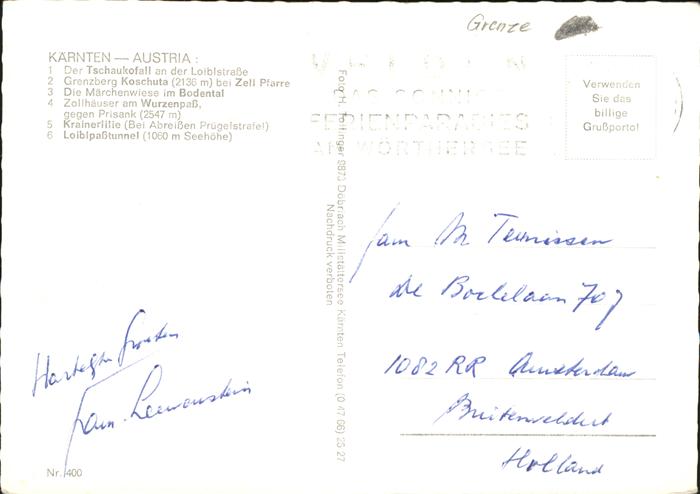 Grenze
KÄRNTEN — AUSTRIA :
1 Der Tschaukofall an der Loiblstraße
2 Grenzberg Koschuta (2136 m) bei Zell Pfarre
3 Die Märchenwiese im Bodental
4 Zollhäuser am Wurzenpaß,
gegen Prisank (2547 m)
5 Krainerlilie (Bei Abreißen Prügelstrafe!)
6 Loiblpaßtunnel (1060 m Seehöhe)
DAS SONNIGE
FERIENPARADIES
AM WÖRTHERSEE
Verwenden
Sie das
billige
Grußporto!
Foto H. 9873 Döbriach Millstättersee Kärnten Telefon (0 47 66) 25 27
Nachdruck verboten
Fam M Teunissen
De Boelelaan 707
1082 RR Amsterdam
Buitenveldert
Holland
Hartelijke Groeten
Fam. Leewenstein
Nr. 400